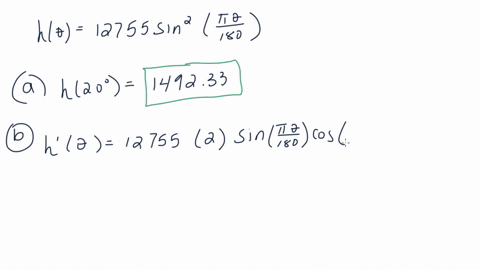 h(θ) = 12755 sin² (πθ/180)
(a) h(20°) = 1492.33
(b) h'(θ) = 12755 (2) sin(πθ/180) cos(